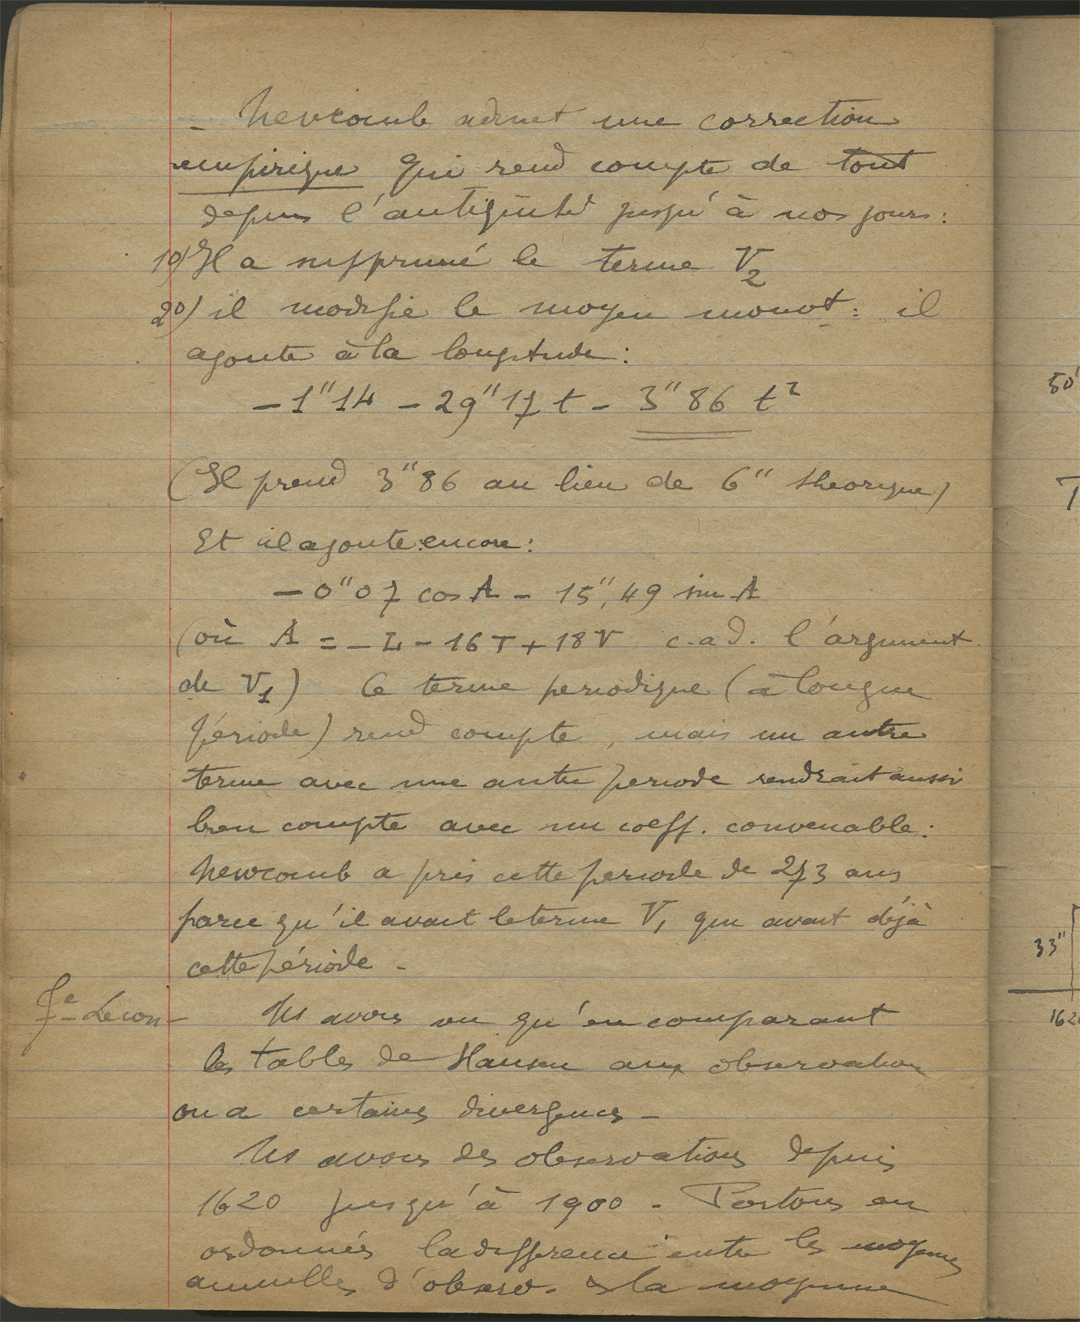 - Newcomb admet une correction
empirique qui rend compte de tout
depuis l'antiquité jusqu'à nos jours:
1º) Il a supprimé le terme V2
2º) il modifie le moyen mouvt: il
ajoute à la longitude:
- 1"14 - 29"17 t - 3"86 t²
(Il prend 3"86 au lieu de 6" théorique)
Et il ajoute encore:
- 0"07 cos A - 15",49 sin A
(où A = - L - 16T + 18V c.a.d. l'argument
de V1) Ce terme periodique (à longue
période) rend compte, mais un autre
terme avec une autre periode rendrait aussi
bien compte avec un coeff. convenable:
Newcomb a pris cette periode de 273 ans
parce qu'il avait le terme V, qui avait déjà
cette période -
Lecon - Ns avons vu qu'en comparant
les tables de Hansen aux observations
on a certaines divergences -
Ns avons des observations depuis
1620 jusqu'à 1900 - Portons en
ordonnées la différence entre les moyennes
annuelles d'observ. & la moyenne
50'
T
33"
162